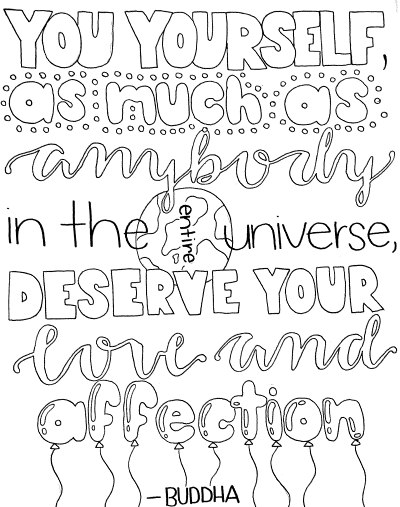 YOU YOURSELF,
as much as
anybody
in the entire universe,
DESERVE YOUR
love and
affection
- BUDDHA